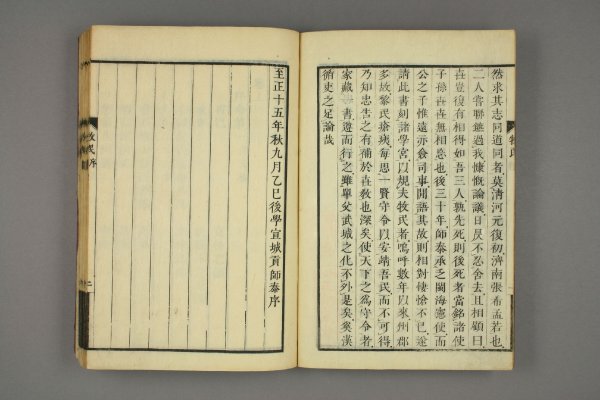 然求其志同道同者莫淸河元復初濟南張希孟若也
二人嘗聯鑣過我慷慨論議日昃不忍舍去且相顧曰
世豈復有相得如吾三人孰先死則後死者當銘諸使
子孫世世無相忘也後三十年師泰承乏閩海憲使而
公之子惟遠亦僉司事閒語其故則相對悽愴不已遂
請此書刻諸學宮以規夫牧民者嗚呼數年以來州郡
多故黎民瘡痍每思一賢守令以安靖吾民而不可得
乃知忠告之有補於世敎也深矣使天下之爲守令者
家藏一書遵而行之雖單父武城之化不外是矣奚漢
循吏之足論哉
至正十五年秋九月乙巳後學宣城貢師泰序
牧民序
二